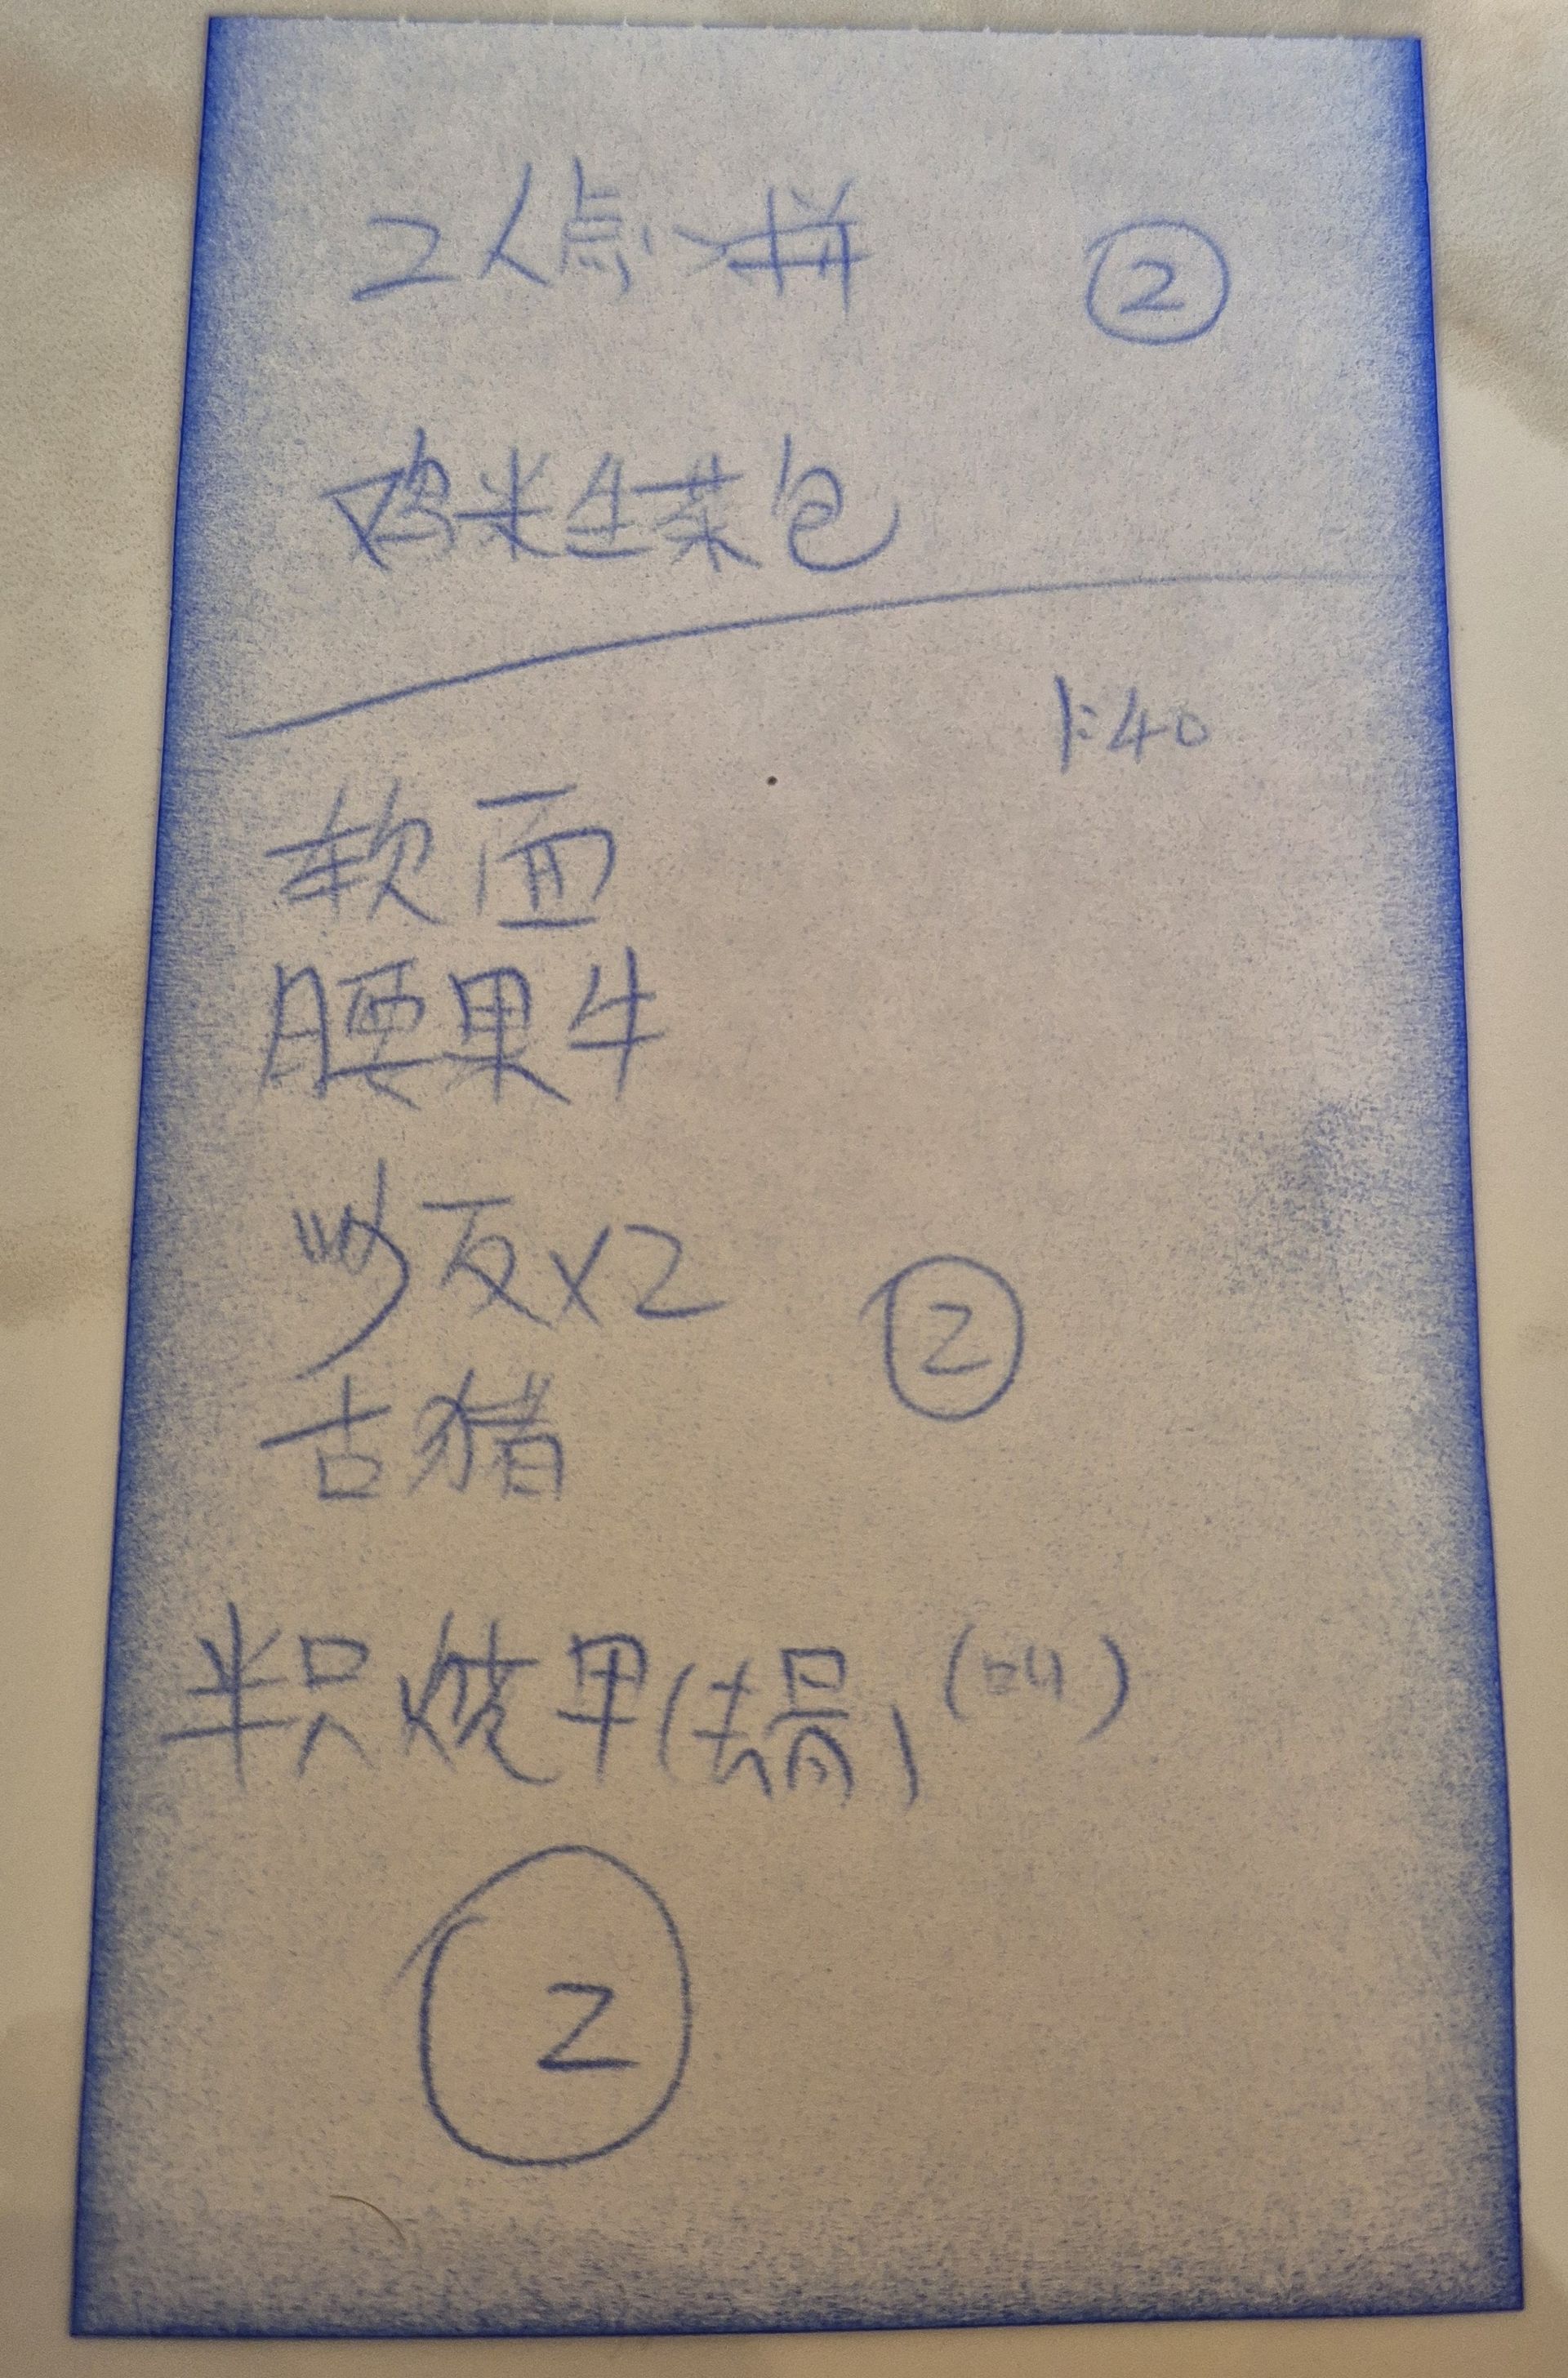 2人点心拼 ②
鸡米生菜包
1:40
软面
腰果牛
炒反x2 ②
古猪
半只烧甲(去骨)
②